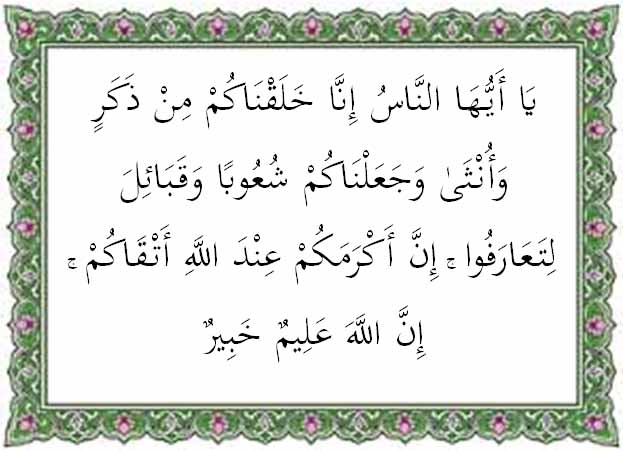 يَا أَيُّهَا النَّاسُ إِنَّا خَلَقْنَاكُمْ مِنْ ذَكَرٍ
وَأُنْثَىٰ وَجَعَلْنَاكُمْ شُعُوبًا وَقَبَائِلَ
لِتَعَارَفُوا ۚ إِنَّ أَكْرَمَكُمْ عِنْدَ اللَّهِ أَتْقَاكُمْ ۚ
إِنَّ اللَّهَ عَلِيمٌ خَبِيرٌ